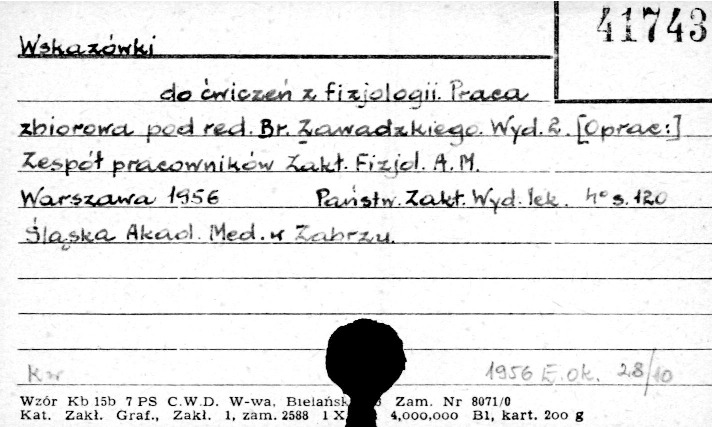 41743
Wskazówki
do ćwiczeń z fizjologii. Praca
zbiorowa pod red. Br. Zawadzkiego. Wyd. 2. [Oprac:]
Zespół pracowników Zakł. Fizjol. A.M.
Warszawa 1956 Państw. Zakł. Wyd. lek. 4° s. 120
Śląska Akad. Med. w Zabrzu.
Kw 1956 E.ok. 28/10
Wzór Kb 15b 7 PS C.W.D. W-wa, Zam. Nr 8071/0
Kat. Zakł. Graf., Zakł. 1, zam. 2588 1 X 4,000,000 Bl, kart. 200 g